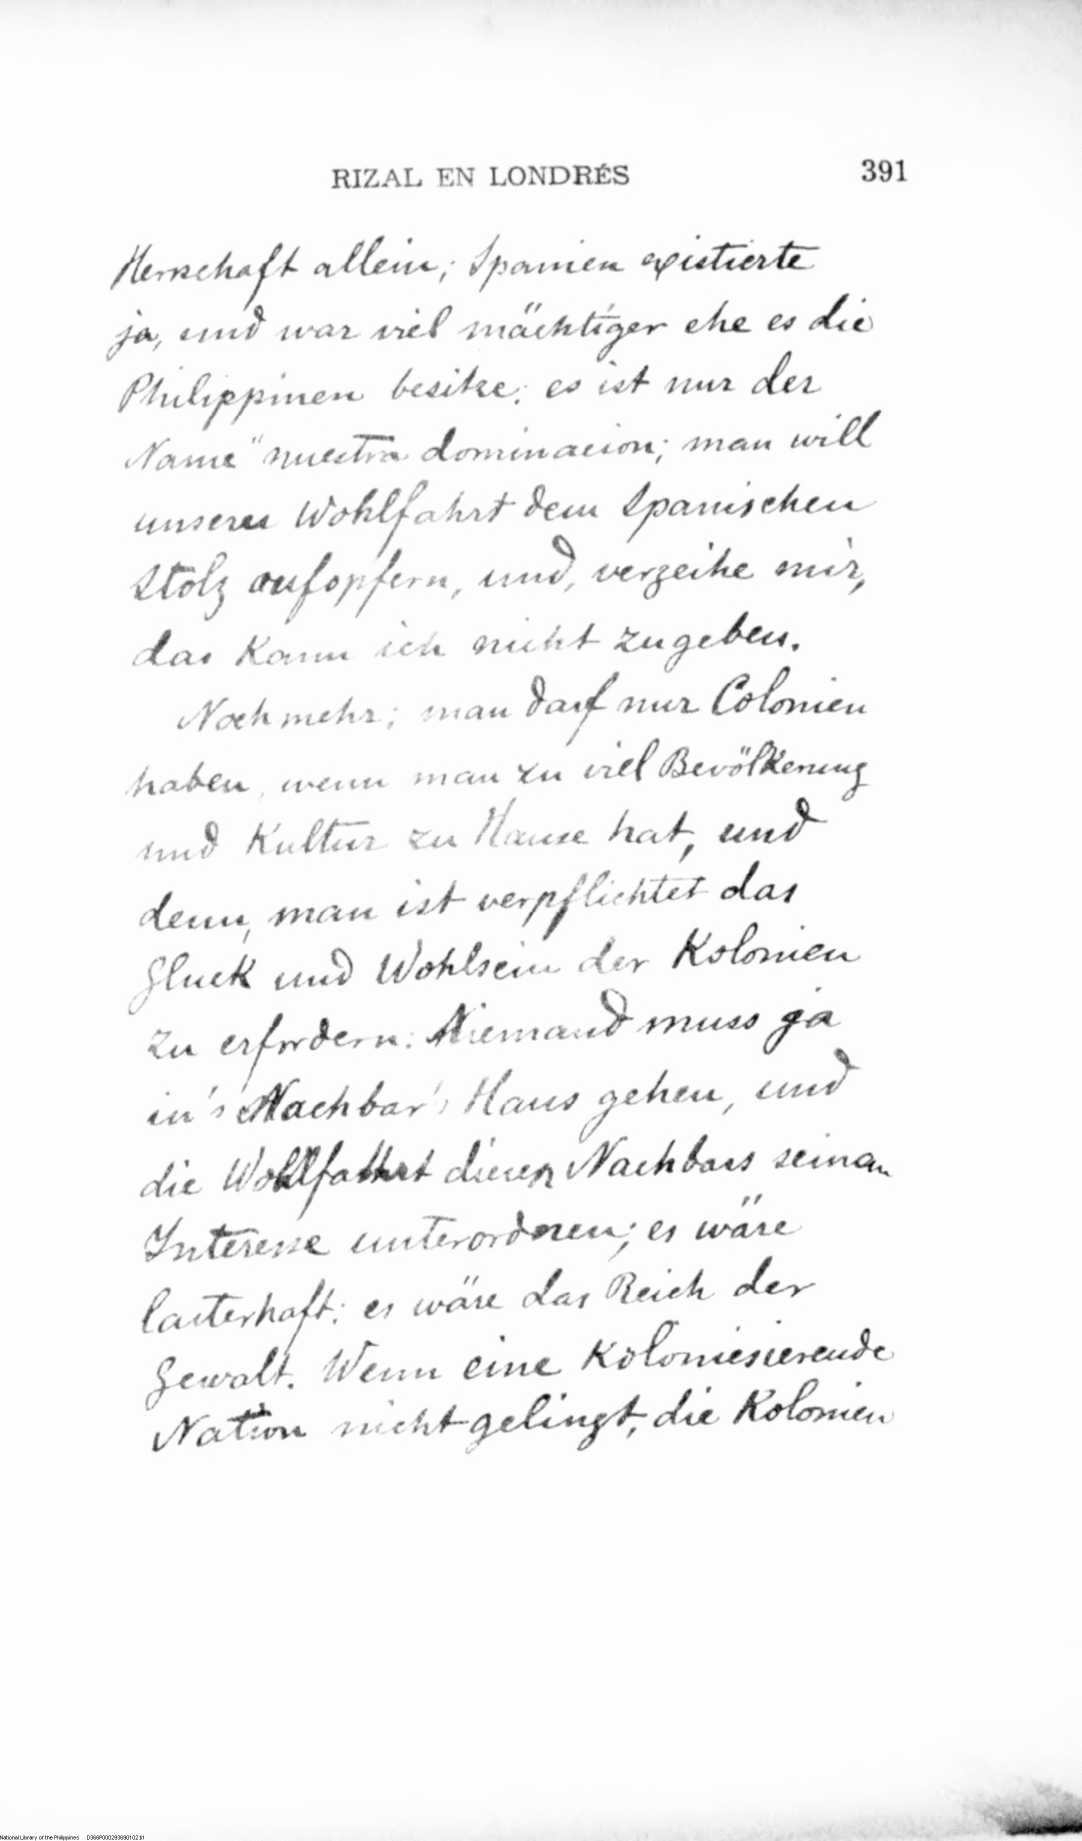 RIZAL EN LONDRÉS 391
Herrschaft allein; Spanien existierte
ja, und war viel mächtiger ehe es die
Philippinen besitze; es ist nur der
Name "nuestra dominacion; man will
unseres Wohlfahrt dem Spanischen
Stolz aufopfern, und, verzeihe mir,
das Kann ich nicht zugeben.
Noch mehr; man darf nur Colonien
haben, wenn man zu viel Bevölkerung
und Kultur zu Hause hat, und
denn, man ist verpflichtet das
Gluck und Wohlsein der Kolonien
zu erfordern. Niemand muss ja
in's Nachbar's Haus gehen, und
die Wohlfahrt dieses Nachbars seinen
Interesse unterordnen; es wäre
lasterhaft: es wäre das Reich der
Gewalt. Wenn eine Koloniesierende
Nation nicht gelingt, die Kolonien
National Library of the Philippines